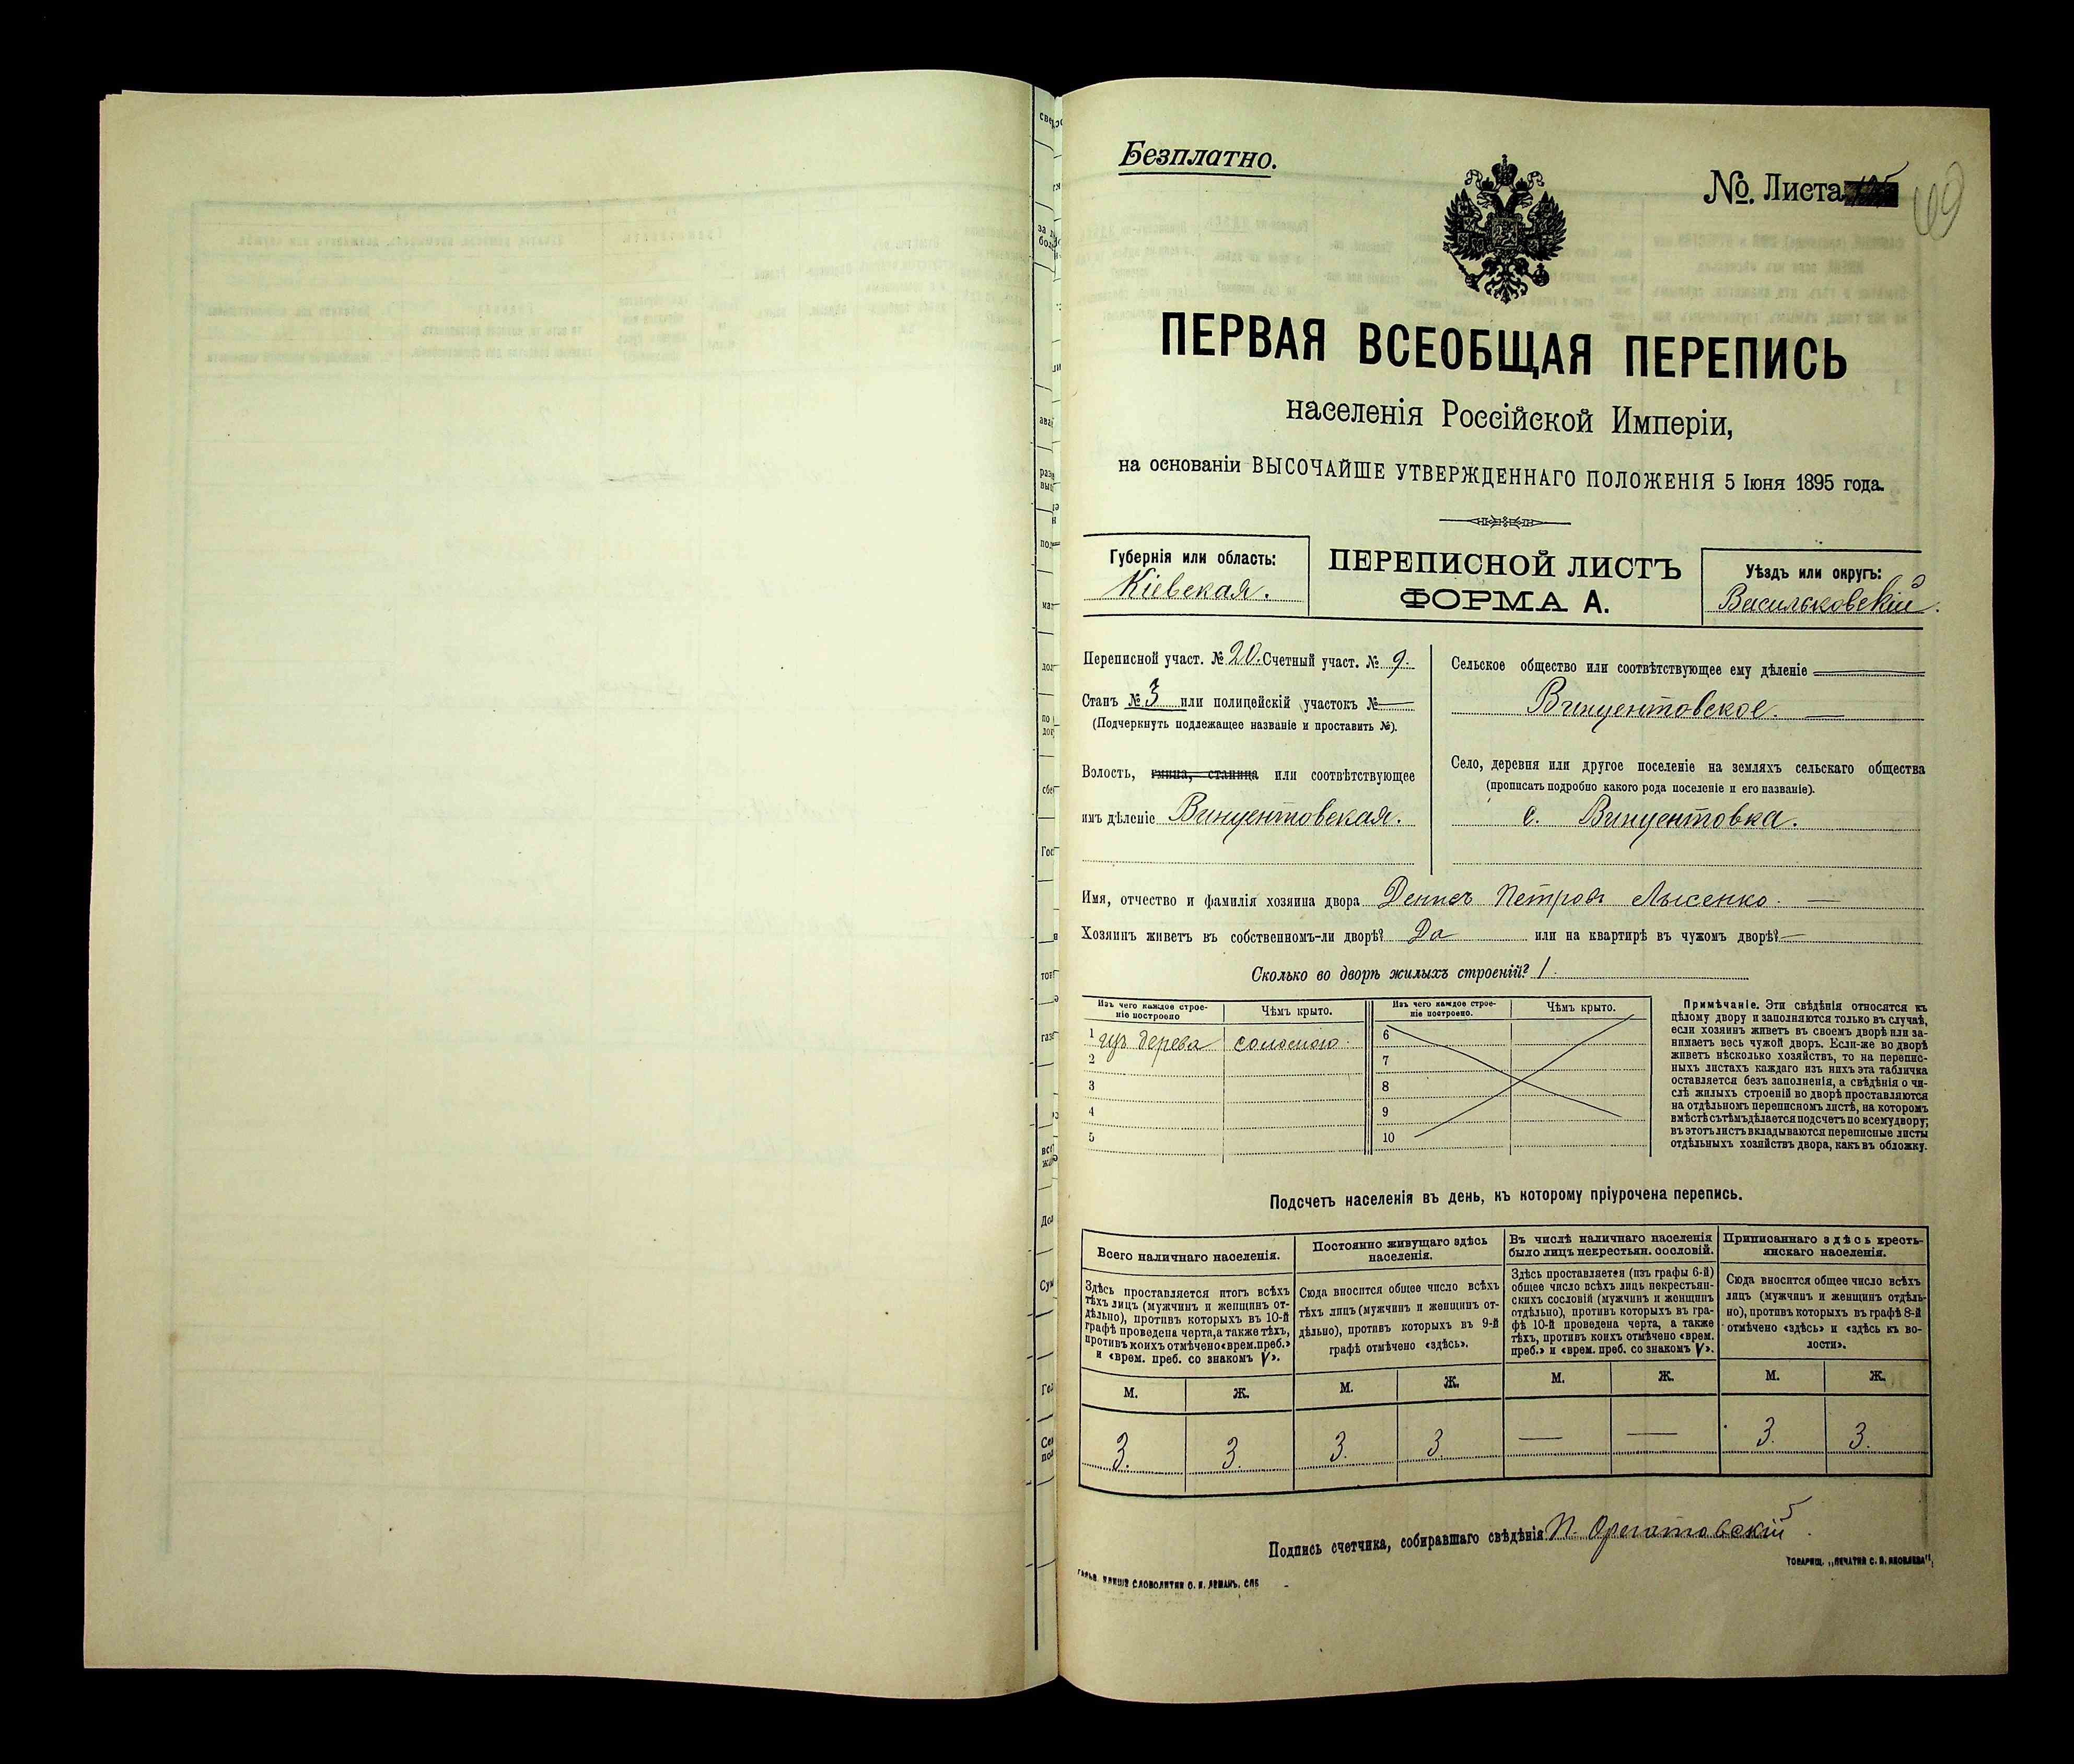 Безплатно.
№. Листа
69
ПЕРВАЯ ВСЕОБЩАЯ ПЕРЕПИСЬ
населенія Россійской Имперіи,
на основаніи ВЫСОЧАЙШЕ УТВЕРЖДЕННАГО ПОЛОЖЕНІЯ 5 Іюня 1895 года.
Губернія или область:
Кіевская.
ПЕРЕПИСНОЙ ЛИСТЪ
ФОРМА А.
Уѣздъ или округъ:
Васильковскій.
Переписной участ. № 20. Счетный участ. № 9.
Станъ № 3 или полицейскій участокъ № —
(Подчеркнуть подлежащее названіе и проставить №).
Волость, гмина, станица или соотвѣтствующее
имъ дѣленіе Винцентовская.
Сельское общество или соотвѣтствующее ему дѣленіе
Винцентовское. —
Село, деревня или другое поселеніе на земляхъ сельскаго общества
(прописать подробно какого рода поселеніе и его названіе).
с. Винцентовка.
Имя, отчество и фамилія хозяина двора Денисъ Петровъ Лысенко. —
Хозяинъ живетъ въ собственномъ-ли дворѣ? Да или на квартирѣ въ чужомъ дворѣ? —
Сколько во дворѣ жилыхъ строеній? 1.
Изъ чего каждое строе-
ніе построено
Чѣмъ крыто.
1 изъ дерева соломою.
2
3
4
5
Изъ чего каждое строе-
ніе построено.
Чѣмъ крыто.
6
7
8
9
10
Примѣчаніе. Эти свѣдѣнія относятся къ
цѣлому двору и заполняются только въ случаѣ,
если хозяинъ живетъ въ своемъ дворѣ или за-
нимаетъ весь чужой дворъ. Если-же во дворѣ
живетъ нѣсколько хозяйствъ, то на перепис-
ныхъ листахъ каждаго изъ нихъ эта табличка
оставляется безъ заполненія, а свѣдѣнія о чи-
слѣ жилыхъ строеній во дворѣ проставляются
на отдѣльномъ переписномъ листѣ, на которомъ
вмѣстѣ съ тѣмъ дѣлается подсчетъ по всему двору;
въ этотъ листъ вкладываются переписные листы
отдѣльныхъ хозяйствъ двора, какъ въ обложку.
Подсчетъ населенія въ день, къ которому пріурочена перепись.
Всего наличнаго населенія.
Здѣсь проставляется итогъ всѣхъ
тѣхъ лицъ (мужчинъ и женщинъ от-
дѣльно), противъ которыхъ въ 10-й
графѣ проведена черта, а также тѣхъ,
противъ коихъ отмѣчено «врем. преб.»
и «врем. преб. со знакомъ V».
Постоянно живущаго здѣсь
населенія.
Сюда вносится общее число всѣхъ
тѣхъ лицъ (мужчинъ и женщинъ от-
дѣльно), противъ которыхъ въ 9-й
графѣ отмѣчено «здѣсь».
Въ числѣ наличнаго населенія
было лицъ некрестьян. сословій.
Здѣсь проставляется (изъ графы 6-й)
общее число всѣхъ лицъ некрестьян-
скихъ сословій (мужчинъ и женщинъ
отдѣльно), противъ которыхъ въ гра-
фѣ 10-й проведена черта, а также
тѣхъ, противъ коихъ отмѣчено «врем.
преб.» и «врем. преб. со знакомъ V».
Приписаннаго здѣсь кресть-
янскаго населенія.
Сюда вносится общее число всѣхъ
лицъ (мужчинъ и женщинъ отдѣль-
но), противъ которыхъ въ графѣ 8-й
отмѣчено «здѣсь» и «здѣсь къ во-
лости».
М. Ж. М. Ж. М. Ж. М. Ж.
3. 3. 3. 3. — — 3. 3.
Подпись счетчика, собиравшаго свѣдѣнія П.
СЛОВОЛИТНИ О. И. ЛЕМАНЪ, СПБ
ТОВАРИЩ. „ПЕЧАТНЯ С. П. ЯКОВЛЕВА“.